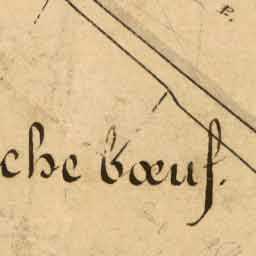 P.
che bœuf.